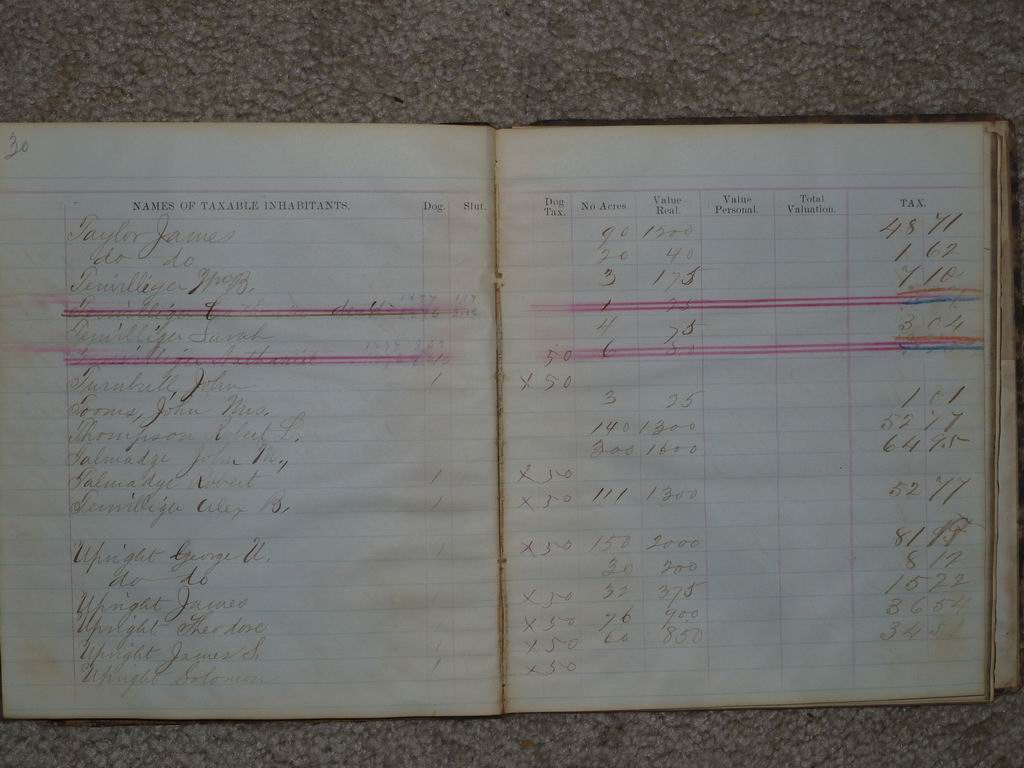 30
NAMES OF TAXABLE INHABITANTS. Dog. Slut. Dog Tax. No Acres. Value Real. Value Personal. Total Valuation. TAX.
Taylor James 90 1200 48 71
do do 20 40 1 62
Terwilliger Wm B. 3 175 7 10
Terwilliger death 1
Terwilliger Sarah 4 75 3 04
Terwilliger Nathaniel 50 6 50
Turnbull, John 1 x 50
Tooms, John Mrs. 3 25 1 01
Thompson Robert L. 140 1300 52 77
Talmadge John M., 300 1600 64 95
Talmadge Robert 1 x 50
Terwilliger Alex B. 1 x 50 111 1300 52 77
Upright George U. 1 x 50 150 2000 81
do do 30 200 8 12
Upright James 1 x 50 32 375 15 22
Upright Theodore x 50 76 900 36 54
Upright James S. 1 x 50 60 850 34 51
Upright Solomon 1 x 50